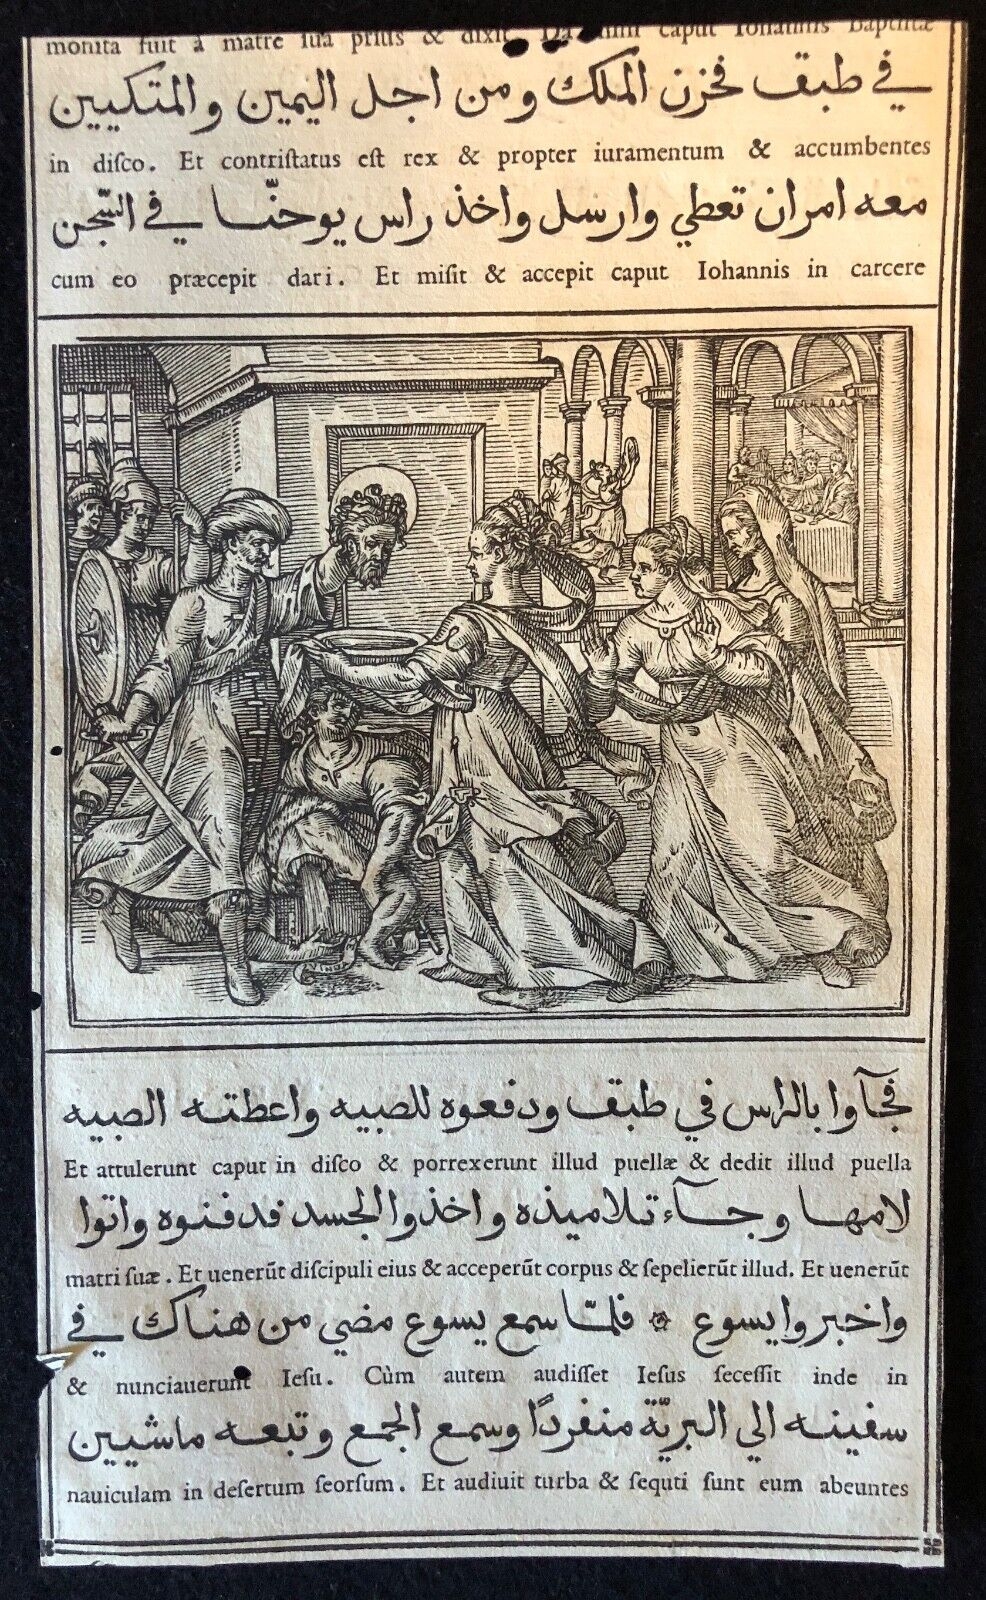 monita fuit à matre sua prius & dixit caput Iohannis Baptistæ
في طبق فحزن الملك ومن اجل اليمين والمتكيين
in disco. Et contristatus est rex & propter iuramentum & accumbentes
معه امر ان تعطي وارسل واخذ راس يوحنّا في السّجن
cum eo præcepit dari. Et misit & accepit caput Iohannis in carcere
فجآوا بالراس في طبق ودفعوه للصبيه واعطته الصبيه
Et attulerunt caput in disco & porrexerunt illud puellæ & dedit illud puella
لامها وجآء تلاميذه واخذوا الجسد فدفنوه واتوا
matri suæ. Et uenerūt discipuli eius & acceperūt corpus & sepelierūt illud. Et uenerūt
واخبروا يسوع ۞ فلمّا سمع يسوع مضي من هناك في
& nunciauerunt Iesu. Cùm autem audisset Iesus secessit inde in
سفينه الي البريّة منفردًا وسمع الجمع وتبعه ماشيين
nauiculam in desertum seorsum. Et audiuit turba & sequti sunt eum abeuntes